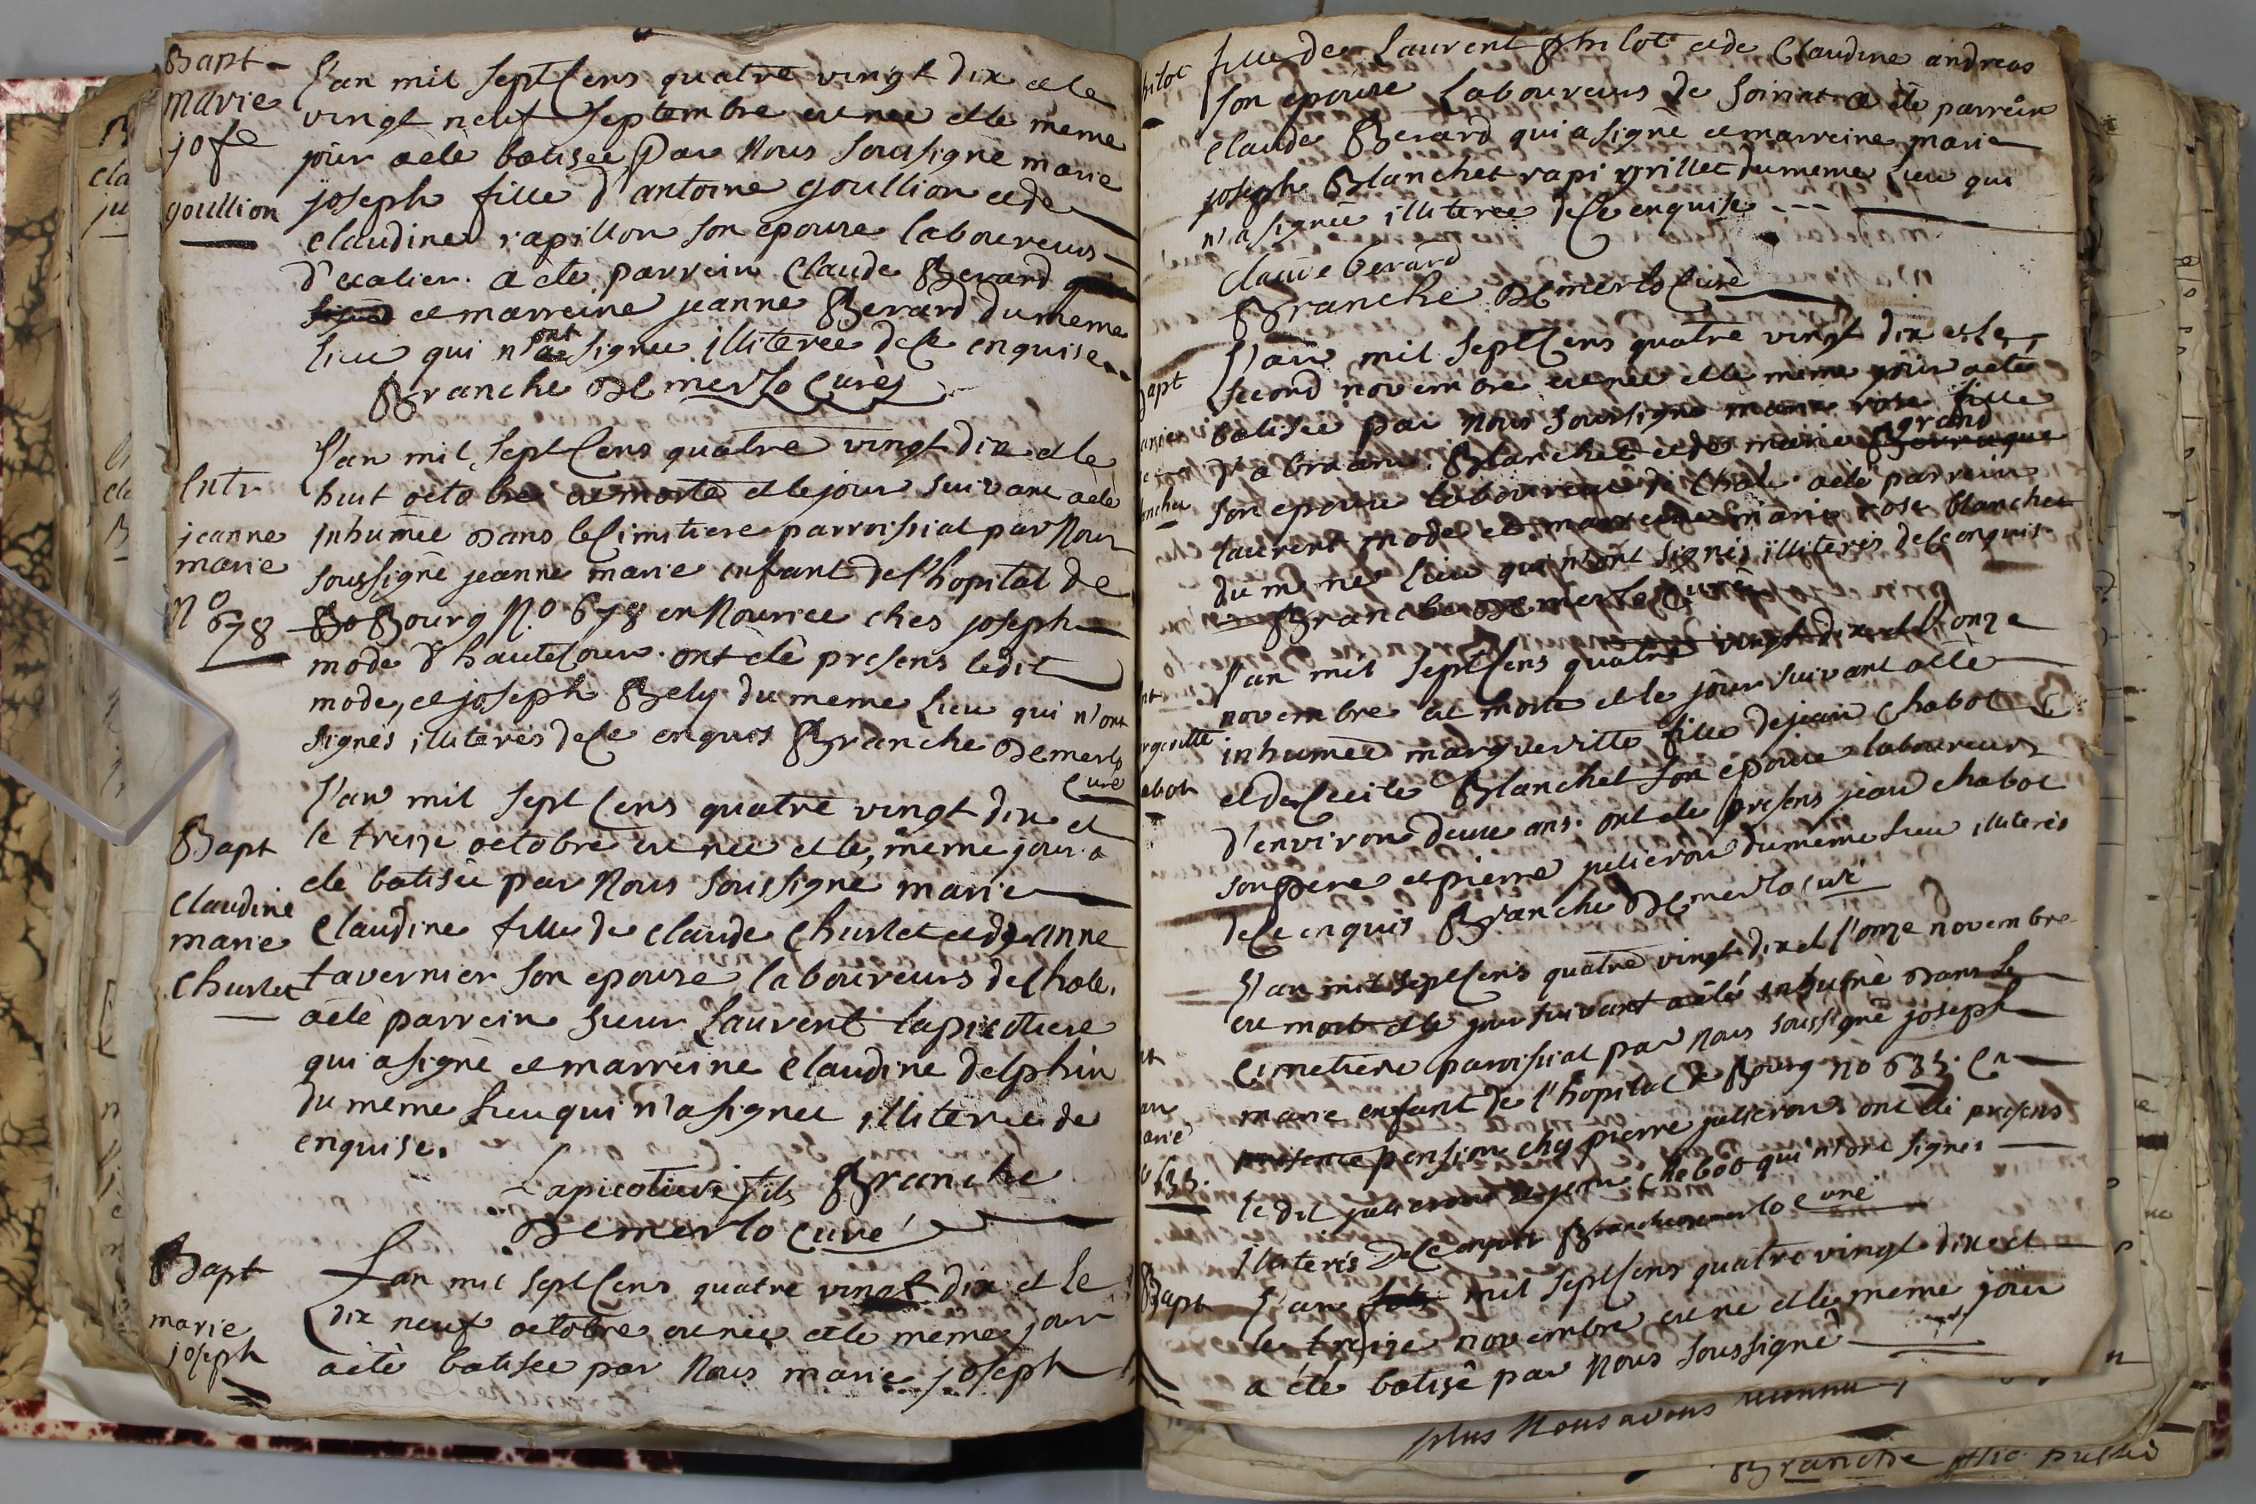 Bapt
marie
jose
goullion
L'an mil sept Cens quatre vingt dix et le
vingt neuf Septembre est née et le meme
jour a eté batisée par Nous soussigné marie
joseph fille d'antoine goullion et de
claudine rapillon son epouse laboureurs
d'exalier. a eté parrein Claude Berard
et marreine jeanne Berard du meme
lieu qui n'ont signee illiterée de Ce enquise
Branche Demerlo Curé
Entr
jeanne
marie
No
678
L'an mil Sept Cens quatre vingt dix et le
huit octobre est morte et le jour suivant a eté
inhumée dans le Cimitiere parroissial par Nous
soussigné jeanne marie enfant de l'hopital de
Bo Bourg No 678 en Nourice ches joseph
mode d'hautecour. ont eté presens ledit
mode, et joseph Bely du meme lieu qui n'ont
signés illiterés de Ce enquis Branche Demerlo
Curé
Bapt
Claudine
marie
Churlet
L'an mil sept Cens quatre vingt dix et
le treize octobre est nee et le même jour a
eté batisée par Nous soussigné marie
Claudine fille de claude Churlet et de anne
tavernier son epouse laboureurs de Chole.
a eté parrein sieur Laurent lapicotiere
qui a signé et marreine Claudine delphin
du meme lieu qui n'a signee illiterée de
enquise.
Lapicotiere fils Branche
Demerlo Curé
Bapt
marie
joseph
L'an mil sept Cens quatre vingt dix et le
dix neuf octobre est née et le meme jour
a eté batisée par Nous marie joseph
hilot
fille de Laurent philot et de Claudine andreas
son epouse Laboureurs de Soiriat a eté parrein
Claude Berard qui a signé et marreine marie
joseph Blanchet rapi vrillet du meme lieu qui
n'a signée illiterée de Ce enquise
claude berard
Branche Demerlo Curé
L'an mil sept Cens quatre vingt dix et le
second novembre est née et le meme jour a eté
batisée par Nous soussigné marie rose fille
d'abraam Blanchet et de marie grand
son epouse laboureurs de Chole. a eté parrein
laurent mode et marreine marie rose blanchet
du meme lieu qui n'ont signés illiterés de Ce enquis
Branche Demerlo Curé
L'an mil sept Cens quatre vingt dix et l'onze
novembre est morte et le jour suivant a eté
inhumée margueritte fille de jean Chabot
et de Cecile Blanchet son epouse laboureurs
d'environ deux ans. ont eté presens jean chabot
son pere et pierre julieron du meme lieu illiterés
de Ce enquis Branche Demerlo curé
L'an mil sept Cens quatre vingt dix et l'onze novembre
est mort et le jour suivant a été inhumé dans le
Cimetiere paroissial par Nous soussigné joseph
marie enfant de l'hopital de Bourg no 633. en
presence pension chez pierre julieron ont eté presens
le dit julieron et jean chabot qui n'ont signés
illiterés de Ce enquis Branche Demerlo curé
633.
Bapt
L'an mil sept Cens quatre vingt dix et
le treize novembre est né et le meme jour
a été batisé par Nous soussigné
plus Nous avons reconnu
Branche